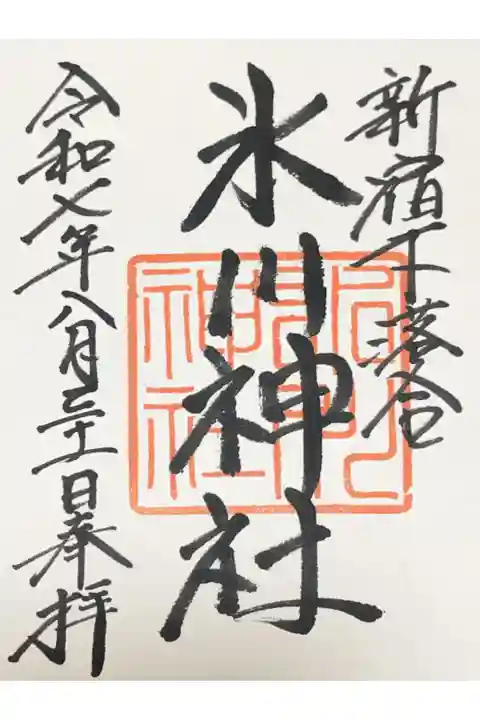 新宿下落合
氷川神社
令和七年八月二十一日奉拝
神社